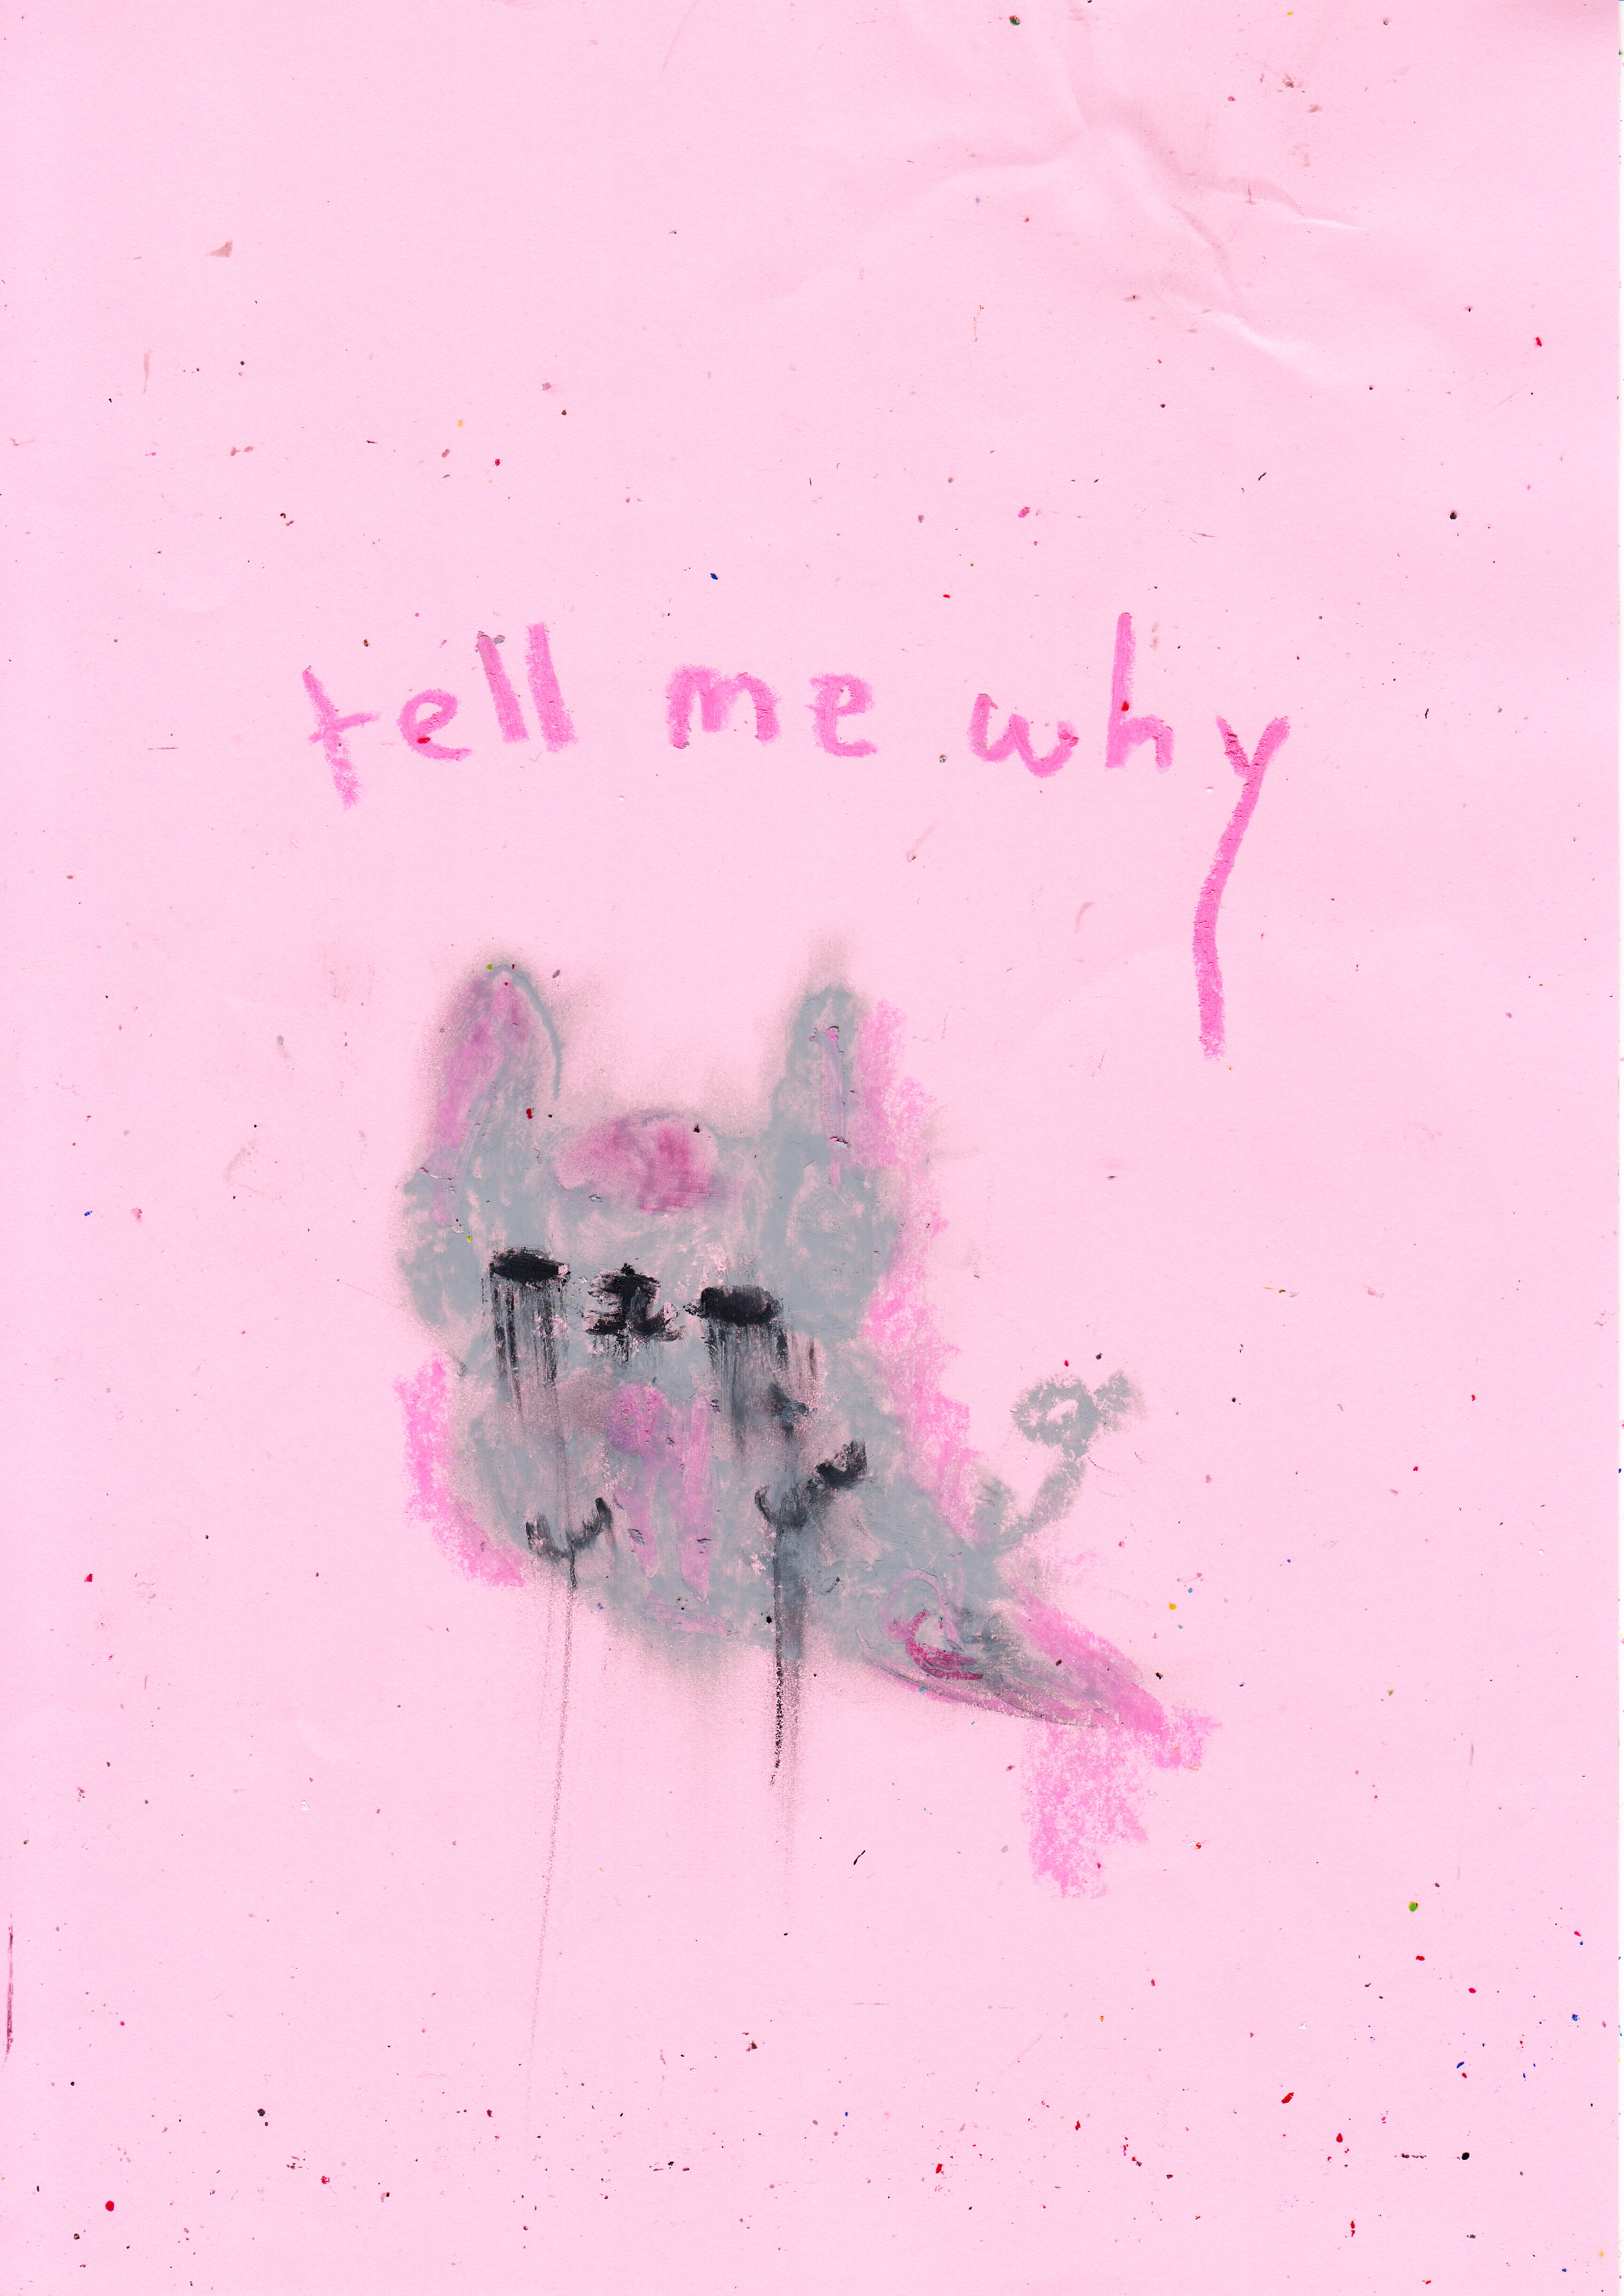 tell me why